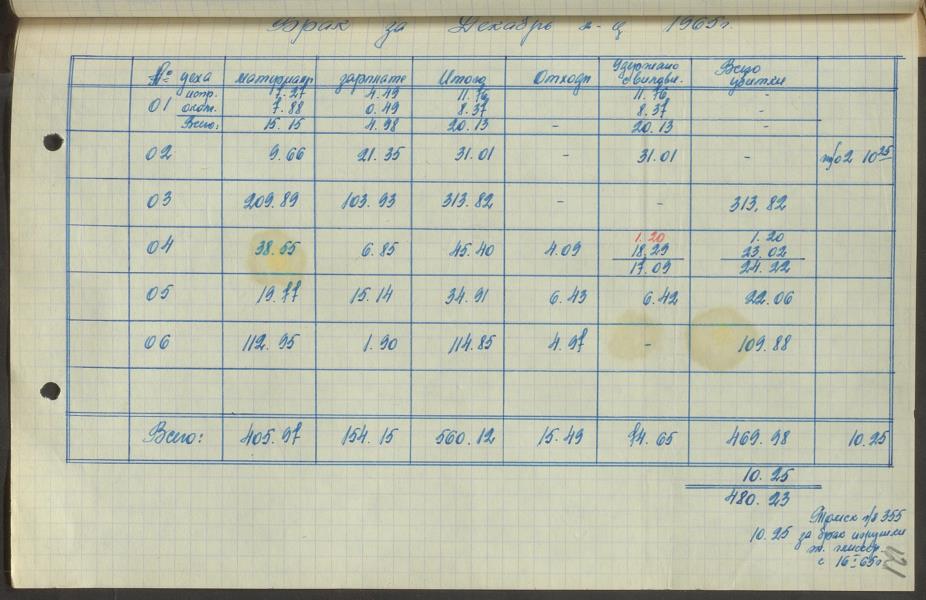 Брак за Декабрь м-ц 1965г.
№ цеха материал зарплате Итого Отходы Удержано с виновн. Всего убытки
01 испр. 7.27 4.49 11.76 11.76 -
окон. 7.88 0.49 8.37 8.37 -
Всего: 15.15 4.98 20.13 - 20.13 -
02 9.66 21.35 31.01 - 31.01 - п/о2 10 25
03 209.89 103.93 313.82 - - 313.82
04 38.55 6.85 45.40 4.09 1.20 1.20
18.29 23.02
17.09 24.22
05 19.77 15.14 34.91 6.43 6.42 22.06
06 112.95 1.90 114.85 4.97 - 109.88
Всего: 405.97 154.15 560.12 15.49 74.65 469.98 10.25
10.25
480.23
Томск п/я 355
10.25 за брак игрушки
с 16-I-65г
121